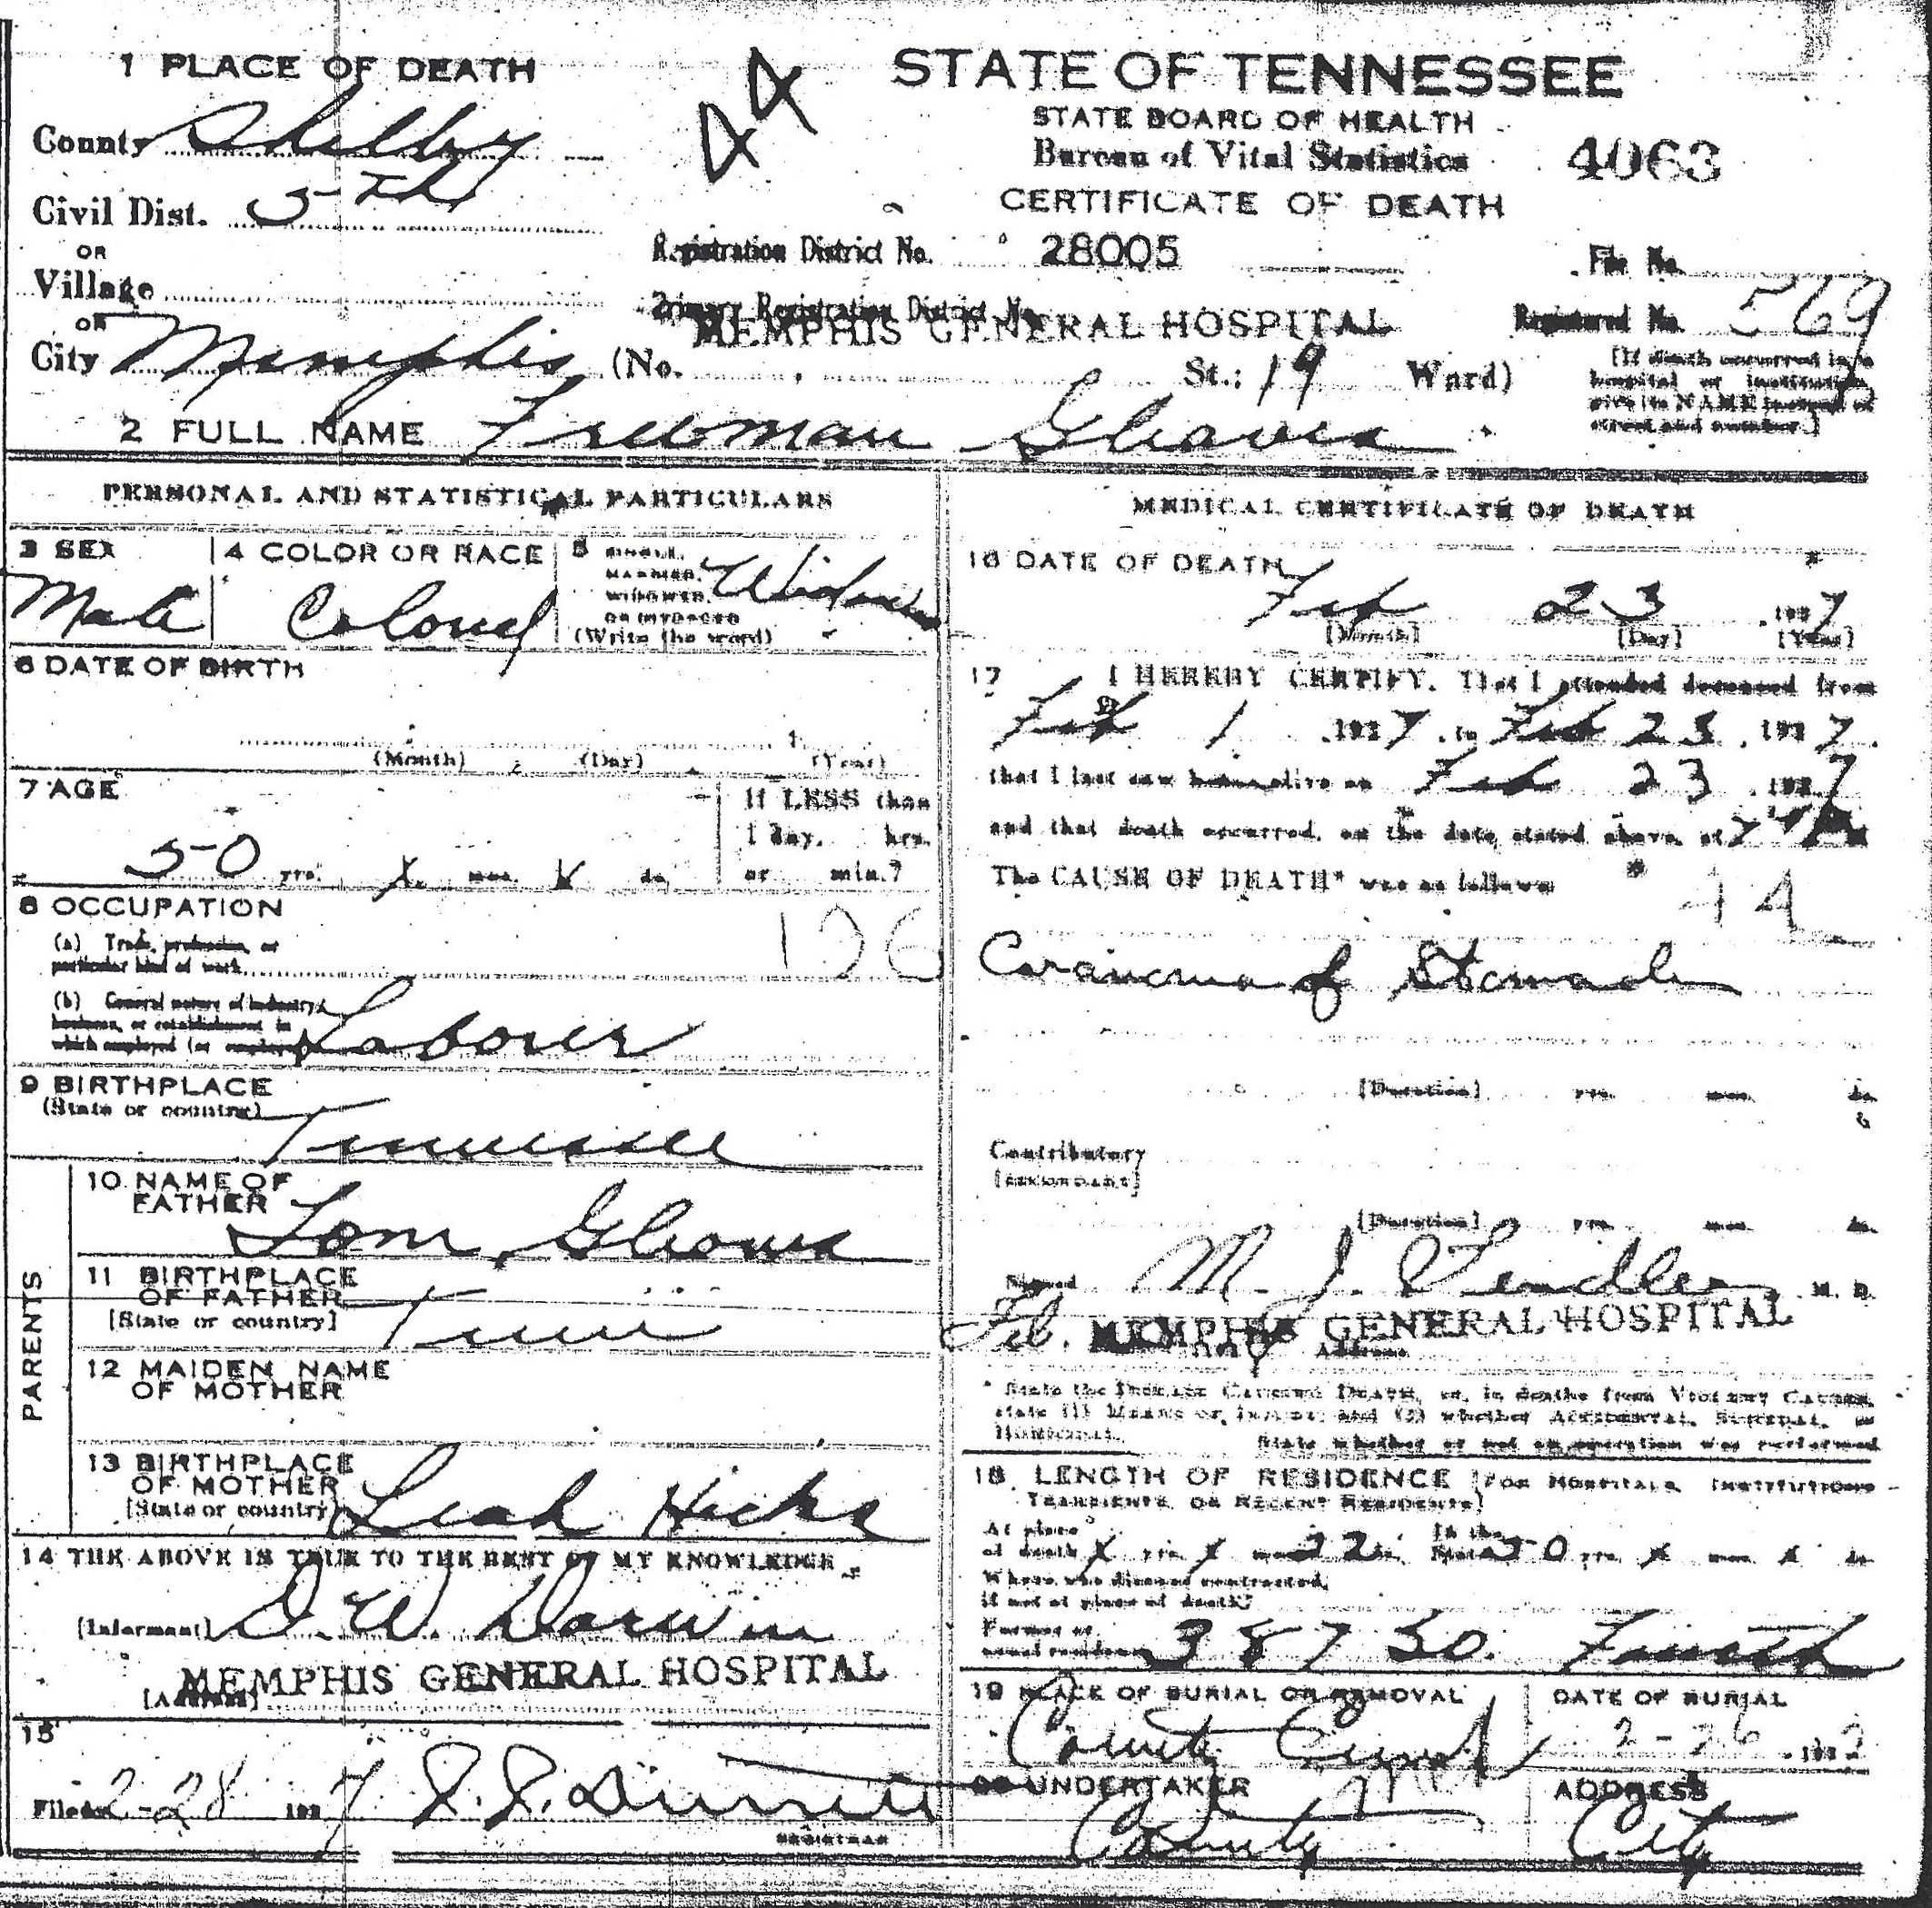 1 PLACE OF DEATH
STATE OF TENNESSEE
STATE BOARD OF HEALTH
Bureau of Vital Statistics
CERTIFICATE OF DEATH
4063
44
County Shelby
Civil Dist. 5th
OR
Village
OR
City Memphis (No. St.: 19 Ward)
Registration District No. 28005
File No.
Primary Registration District No.
MEMPHIS GENERAL HOSPITAL
Registered No. 569
[If death occurred in a
hospital or institution,
give its NAME instead of
street and number.]
2 FULL NAME Freeman Gleaves
PERSONAL AND STATISTICAL PARTICULARS
3 SEX
Male
4 COLOR OR RACE
Colored
5 SINGLE,
MARRIED,
WIDOWED,
OR DIVORCED
(Write the word)
6 DATE OF BIRTH
(Month) (Day) (Year)
7 AGE
50 yrs. x mos. x ds.
If LESS than
1 day, hrs.
or min.?
8 OCCUPATION
(a) Trade, profession, or
particular kind of work
(b) General nature of industry,
business, or establishment in
which employed (or employer)
Laborer
9 BIRTHPLACE
(State or country)
Tennessee
PARENTS
10 NAME OF
FATHER
Tom Gleaves
11 BIRTHPLACE
OF FATHER
[State or country]
Tenn
12 MAIDEN NAME
OF MOTHER
13 BIRTHPLACE
OF MOTHER
[State or country]
Leah Hicks
14 THE ABOVE IS TRUE TO THE BEST OF MY KNOWLEDGE
(Informant) D. W. Darwin
MEMPHIS GENERAL HOSPITAL
[Address]
15
Filed 2-28 1927
REGISTRAR
MEDICAL CERTIFICATE OF DEATH
16 DATE OF DEATH
Feb 23 1927
[Month] [Day] [Year]
17 I HEREBY CERTIFY, That I attended deceased from
Feb 1 1927 to Feb 23, 1927.
that I last saw him alive on Feb 23 1927
and that death occurred, on the date stated above, at
The CAUSE OF DEATH* was as follows
44
Carcinoma of Stomach
[Duration] yrs. mos. ds.
Contributory
[SECONDARY]
[Duration] yrs. mos. ds.
Signed M. J. Tendler M. D.
Feb. MEMPHIS GENERAL HOSPITAL
Address
* State the DISEASE CAUSING DEATH, or, in deaths from VIOLENT CAUSES,
state (1) MEANS OF INJURY; and (2) whether ACCIDENTAL, SUICIDAL, or
HOMICIDAL. State whether or not an operation was performed
18 LENGTH OF RESIDENCE [FOR HOSPITALS, INSTITUTIONS
TRANSIENTS, OR RECENT RESIDENTS]
At place
of death x yrs. x mos. 22 ds. In the
State 50 yrs. x mos. x ds.
Where was disease contracted,
if not at place of death?
Former or
usual residence 387 So. Fourth
19 PLACE OF BURIAL OR REMOVAL
DATE OF BURIAL
2-26 1927
20 UNDERTAKER
County
ADDRESS
City